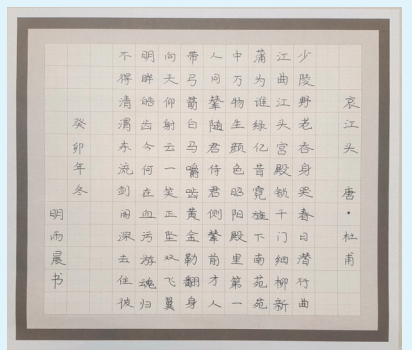 哀江头 唐·杜甫
少陵野老吞身哭春日潜行曲
江曲江头宫殿锁千门细柳新
蒲为谁绿忆昔霓旌下南苑苑
中万物生颜色昭阳殿里第一
人同辇随君侍君侧辇前才人
带弓箭白马嚼啮黄金勒翻身
向天仰射云一笑正坠双飞翼
明眸皓齿今何在血污游魂归
不得清渭东流剑阁深去住彼
癸卯年冬
明雨晨书